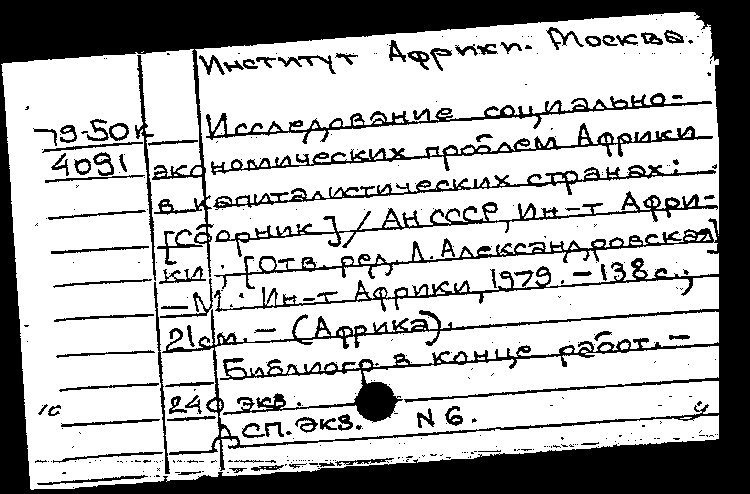 Институт Африки. Москва.
79-50к Исследование социально-
4091 экономических проблем Африки
в капиталистических странах:
[Сборник] / АН СССР, Ин-т Афри-
ки; [Отв. ред. Л. Александровская]
– М.: Ин-т Африки, 1979. – 138 с.;
21 см. – (Африка).
Библиогр в конце работ. –
240 экз.
сп. экз. N 6.